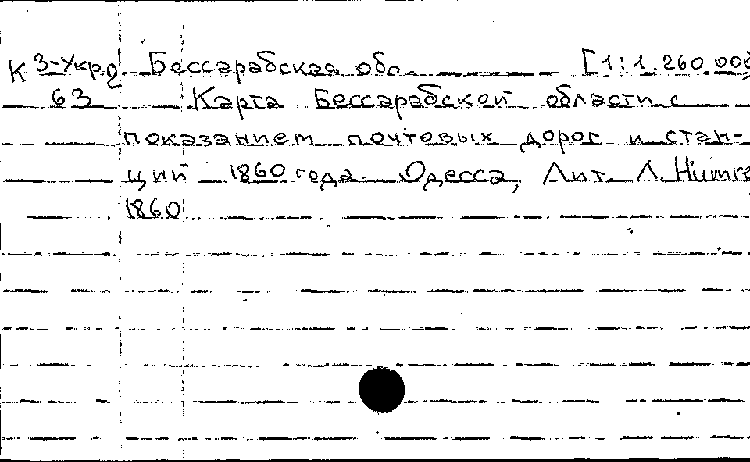 К 3-Укр Бессарабская обл. [1:1.260.000
63 Карта Бессарабской области с
показанием почтовых дорог и стан-
ций 1860 года. Одесса, Лит. Л. Нитче
1860